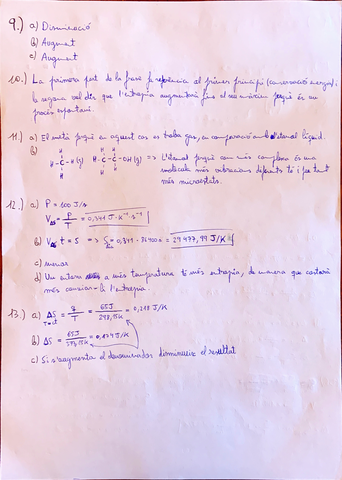 9.) a) Disminució
b) Augment
c) Augment
10.) La primera part de la frase fa referència al primer principi (conservació energia) i
la segona vol dir que l'entropia augmentarà fins al seu màxim perquè és un
procés espontani.
11.) a) El metà perquè en aquest cas es troba gas, en comparació amb l'etanol líquid.
b) H H H
H-C-H(g) H-C-C-OH(g) => L'etanol perquè com més complexa és una
H H H molècula més vibracions diferents té i per tant
més microestats.
12.) a) P = 100 J/s
V ΔS = P/T = 0,341 J·K⁻¹·s⁻¹
b) V ΔS t = S => S = 0,341 · 86400 s = 29477,99 J/K
c) menor
d) Un sistema a més temperatura té més entropia, de manera que costarà
més canviar-li l'entropia.
13.) a) ΔS = q/T = 65J/298,15K = 0,218 J/K
T=ct
b) ΔS = 65J/373,15K = 0,174 J/K
c) Si s'augmenta el denominador disminueix el resultat